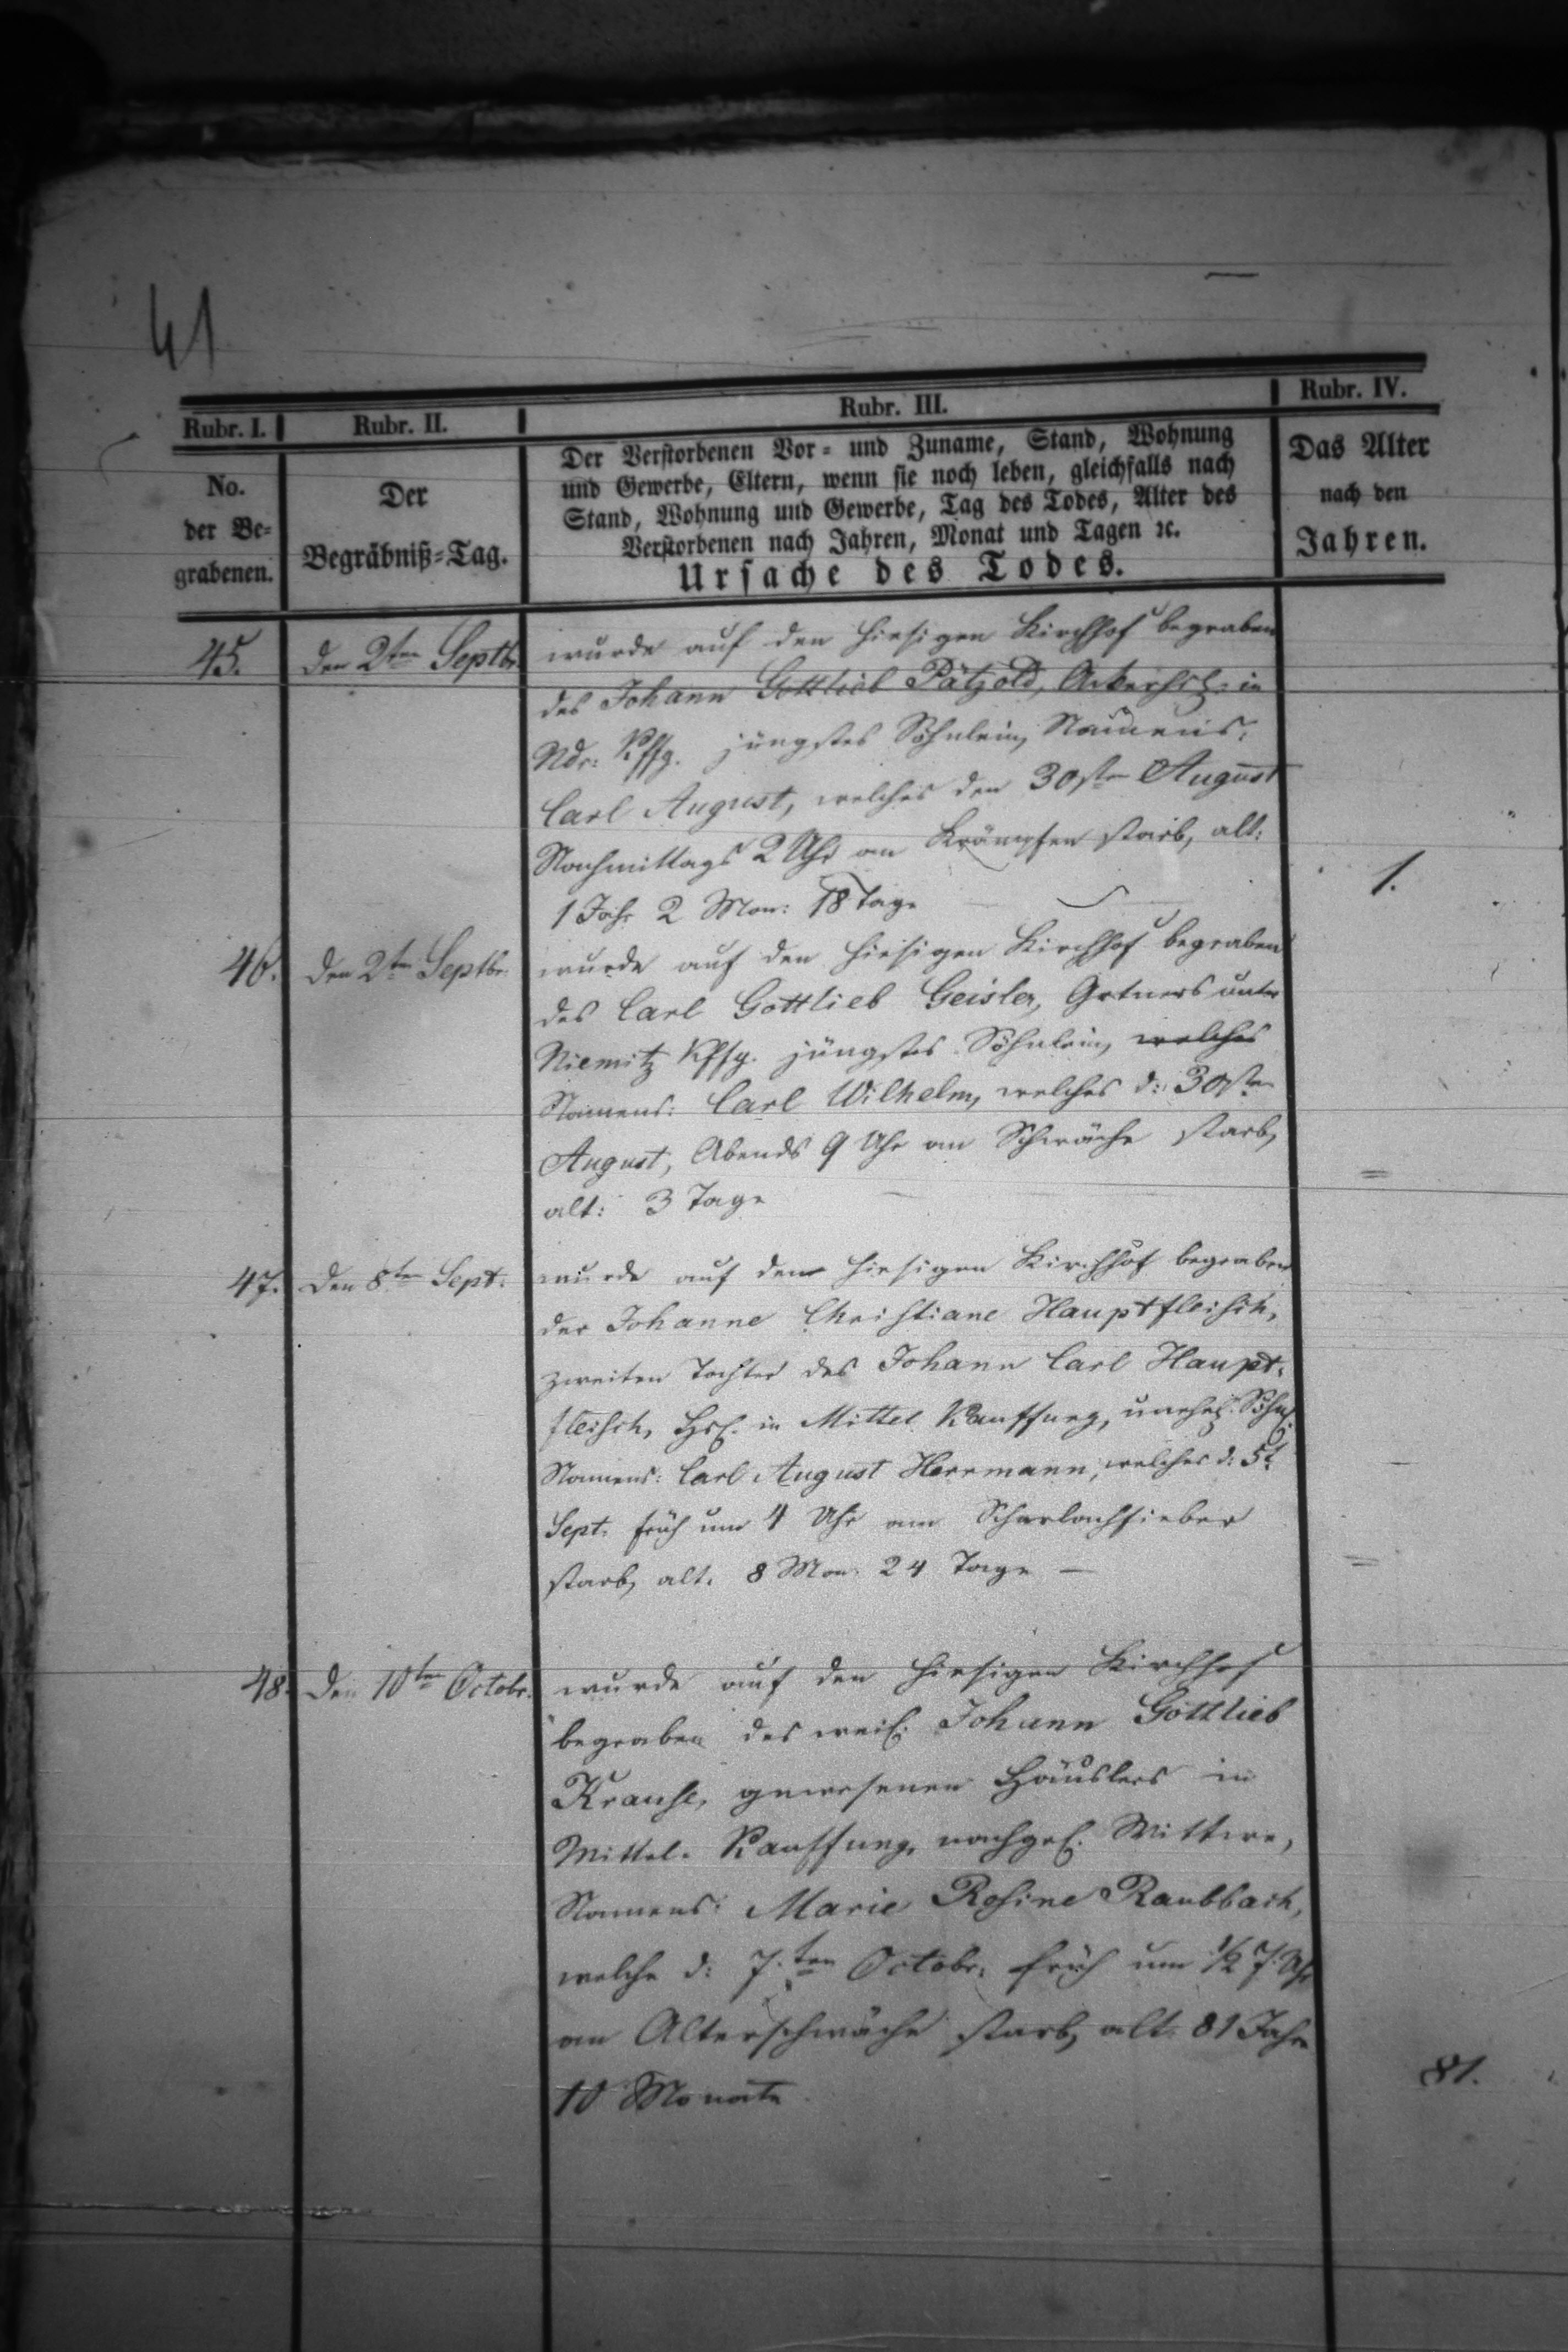 41
Rubr. I. Rubr. II. Rubr. III. Rubr. IV.
No.
der Be-
grabenen.
Der
Begräbniß-Tag.
Der Verstorbenen Vor- und Zuname, Stand, Wohnung
und Gewerbe, Eltern, wenn sie noch leben, gleichfalls nach
Stand, Wohnung und Gewerbe, Tag des Todes, Alter des
Verstorbenen nach Jahren, Monat und Tagen ꝛc.
Ursache des Todes.
Das Alter
nach den
Jahren.
45. den 2ten Septbr. wurde auf den hiesigen Kirchhof begraben
des Johann Gottlieb Pätzold, in
Ndr: Kffg. jüngstes Söhnlein, Namens:
Carl August, welches den 30sten August
Nachmittags 2 Uhr an Krämpfen starb, alt:
1 Jahr 2 Mon: 18 Tage 1.
46. den 2ten Septbr. wurde auf den hiesigen Kirchhof begraben
des Carl Gottlieb Geisler, Grtners unter
Niemitz Kffg. jüngstes Söhnlein, welches
Namens: Carl Wilhelm, welches d: 30sten
August, Abends 9 Uhr an Schwäche starb,
alt: 3 Tage
47. den 8ten Sept. wurde auf dem hiesigen Kirchhof begraben
der Johanne Christiane Hauptfleisch,
zweiten Tochter des Johann Carl Haupt-
fleisch, Hsl. in Mittel Kauffung, unehel. Söhnl.
Namens: Carl August Herrmann, welches d: 5t.
Sept. früh um 4 Uhr am Scharlachfieber
starb, alt. 8 Mon. 24 Tage —
48. den 10ten Octobr. wurde auf den hiesigen Kirchhof
begraben des weil. Johann Gottlieb
Krause, gewesenen Häuslers in
Mittel-Kauffung, nachgel. Wittwe,
Namens: Marie Rosine Raubbach,
welche d: 7.ten Octobr. früh um ½ 7. Uhr
an Alterschwäche starb, alt. 81 Jahre
10 Monate. 81.